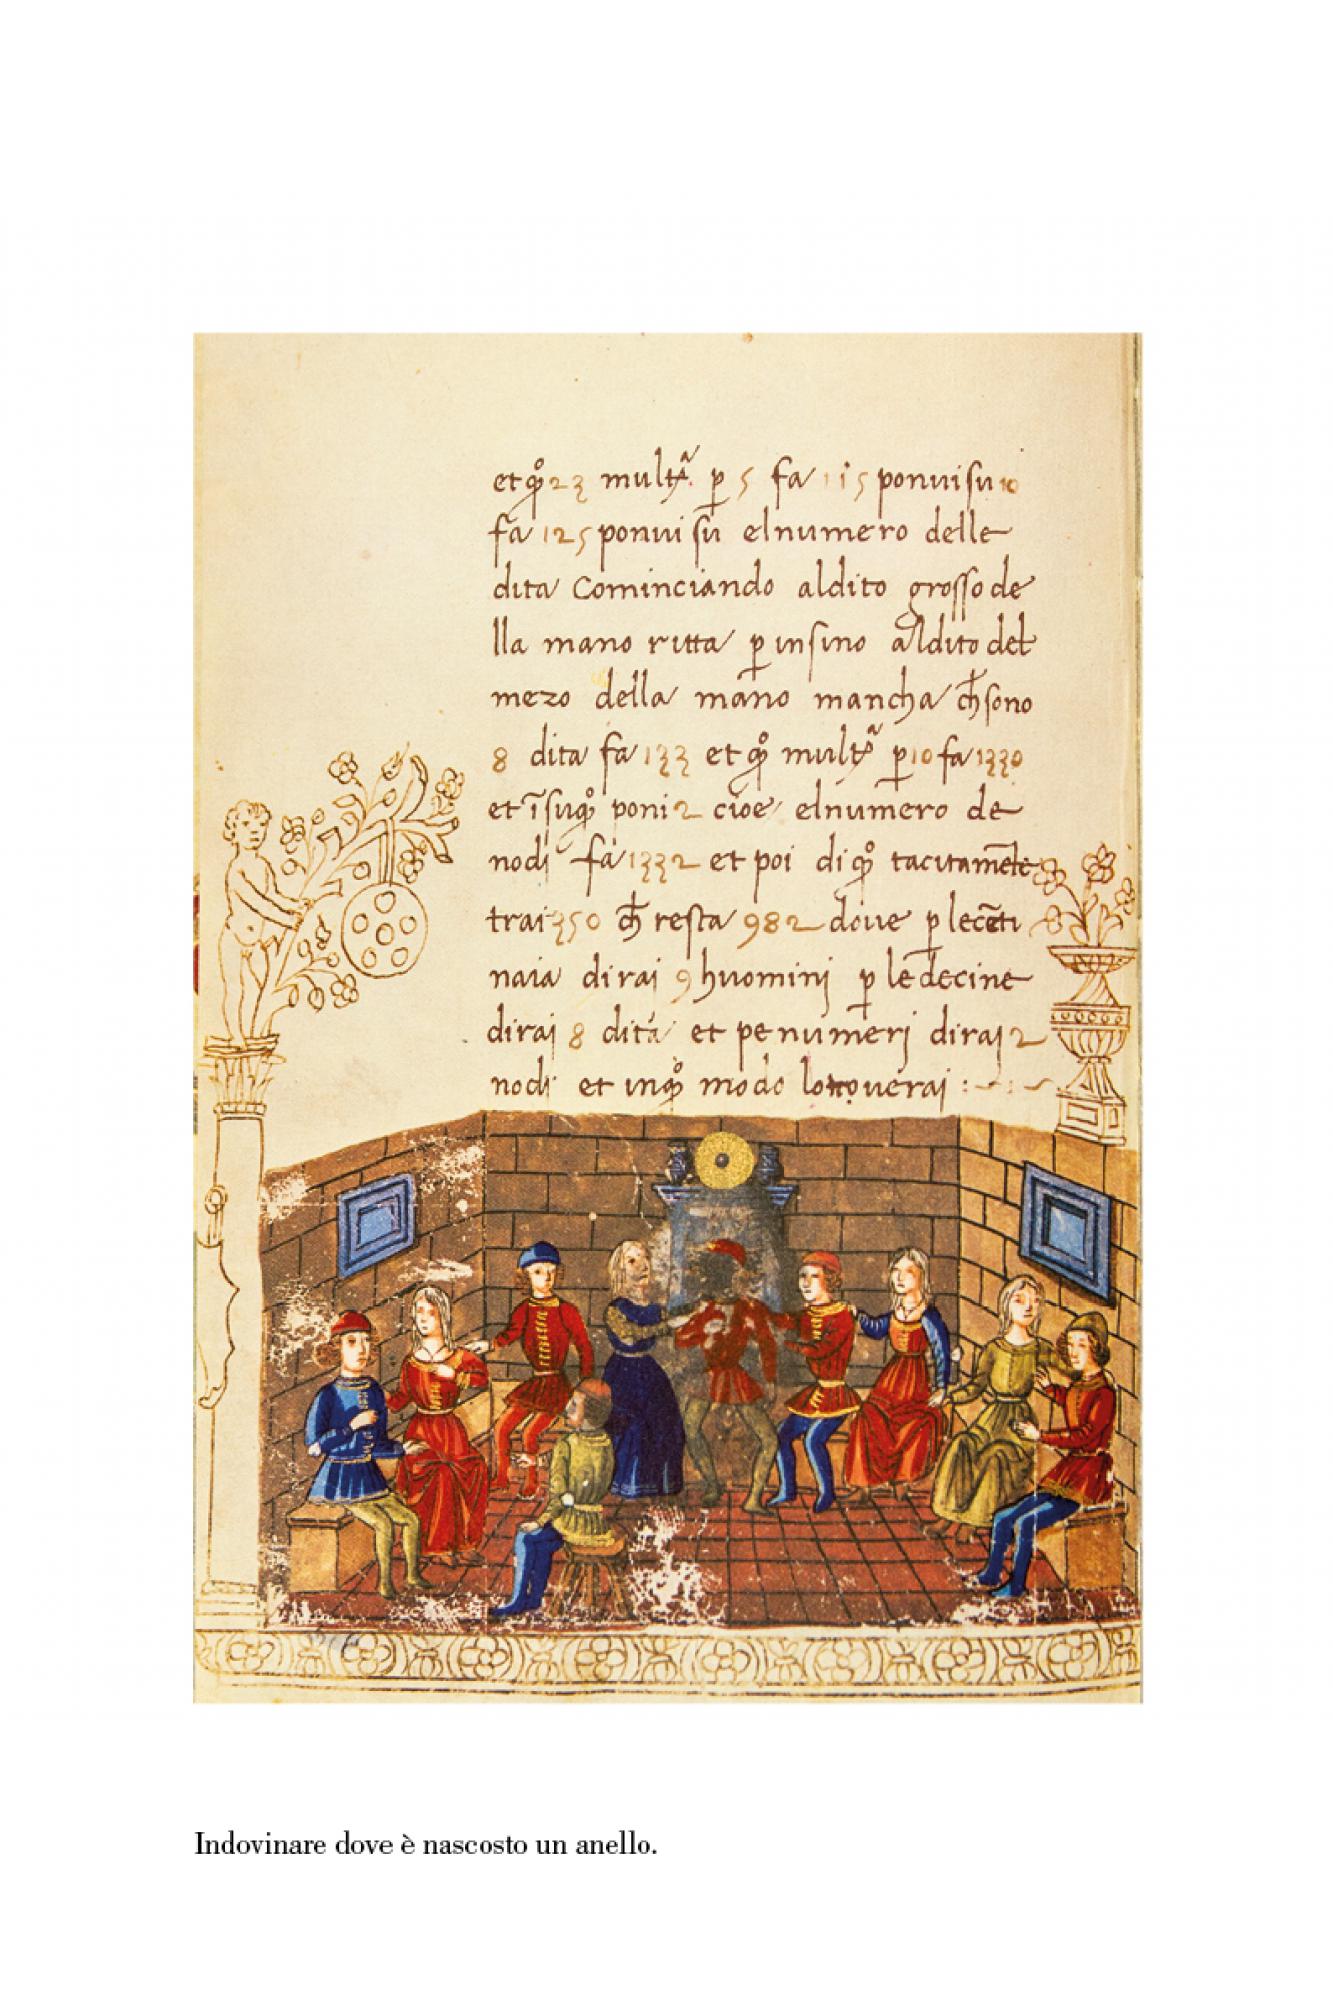 et qͦ 23 multª. p̱ 5 fa 115 ponvi su 10
fa 125 ponvi su el numero delle
dita Cominciando al dito grosso de
lla mano ritta p̱ insino al dito del
mezo della mano mancha ch̄ sono
8 dita fa 133 et qͦ multª p̱ 10 fa 1330
et ī su qͦ poni 2 cioe el numero de
nodi fa 1332 et poi di qͦ tacitamēte
trai 350 ch̄ resta 982 dove p̱ le cēti
naia dirai 9 huominj p̱ le decine
dirai 8 dita et pe numerj dirai 2
nodi et in qͦ modo lo troverai :~
Indovinare dove è nascosto un anello.